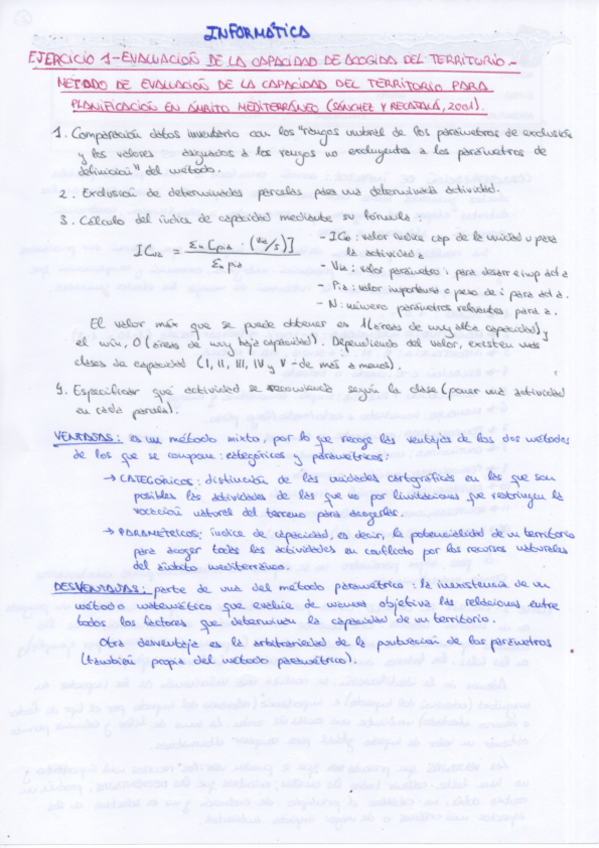 INFORMÁTICA
EJERCICIO 1-EVALUACIÓN DE LA CAPACIDAD DE ACOGIDA DEL TERRITORIO.-
MÉTODO DE EVALUACIÓN DE LA CAPACIDAD DEL TERRITORIO PARA
PLANIFICACIÓN EN ÁMBITO MEDITERRÁNEO (SÁNCHEZ Y RECATALÁ, 2001).
1. Comparación datos inventario con los "rangos umbral de los parámetros de exclusión
y los valores asignados a los rangos no excluyentes a los parámetros de
definición" del método.
2. Exclusión de determinadas parcelas para una determinada actividad.
3. Cálculo del índice de capacidad mediante su fórmula:
ICua = Σn [pia · (Via/5)] / Σn pia
- ICua: valor índice cap de la unidad u para
la actividad a.
- Via: valor parámetro i para desarr e imp act a
- Pia: valor importancia o peso de i para act a.
- N: número parámetros relevantes para a.
El valor máx que se puede obtener es 1 (áreas de muy alta capacidad) y
el mín, 0 (áreas de muy baja capacidad). Dependiendo del valor, existen unas
clases de capacidad (I, II, III, IV y V - de más a menos).
4. Especificar qué actividad se recomienda según la clase (poner una actividad
en cada parcela).
VENTAJAS: es un método mixto, por lo que recoge las ventajas de los dos métodos
de los que se compone: categóricos y paramétricos:
→ CATEGÓRICOS: distinción de las unidades cartográficas en las que son
posibles las actividades de las que no por limitaciones que restringen la
vocación natural del terreno para acogerlas.
→ PARAMÉTRICOS: índice de capacidad, es decir, la potencialidad de un territorio
para acoger todas las actividades en conflicto por los recursos naturales
del ámbito mediterráneo.
DESVENTAJAS: parte de una del método paramétrico: la inexistencia de un
método matemático que evalúe de manera objetiva las relaciones entre
todos los factores que determinan la capacidad de un territorio.
Otra desventaja es la arbitrariedad de la puntuación de los parámetros
(también propia del método paramétrico).